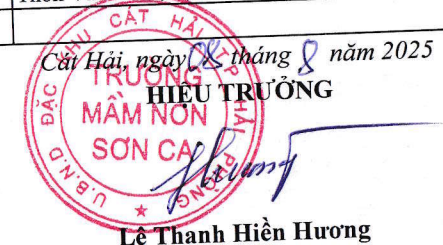 Cát Hải, ngày 08 tháng 8 năm 2025
HIỆU TRƯỞNG
U.B.N.D ĐẶC KHU CÁT HẢI T.P HẢI PHÒNG
TRƯỜNG
MẦM NON
SƠN CA
Lê Thanh Hiền Hương